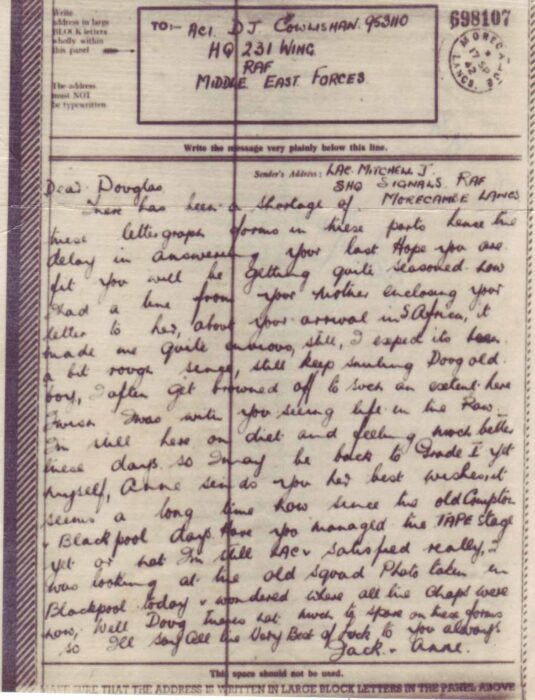 Write
address in large
BLOCK letters
wholly within
this panel
The address
must NOT
be typewritten.
TO:- AC1 D J COWLISHAN. 953110
HQ 231 WING
RAF
MIDDLE EAST FORCES
698107
MORECAMBE
17 SP
42
LANCS.
Write the message very plainly below this line.
Sender's Address: LAC. MITCHELL J.
SHQ SIGNALS RAF
MORECAMBE LANCS
Dear Douglas
There has been a shortage of
these lettergraph forms in these parts hence the
delay in answering your last Hope you are
fit you will be getting quite seasoned now
I had a line from your Mother enclosing your
letter to her, about your arrival in S Africa, it
made me quite envious, still, I expect its been
a bit rough since, still keep smiling Doug old
boy, I often get browned off to such an extent here
I wish I was with you seeing life in the Raw
I'm still here on diet and feeling much better
these days so I may be back to Grade I yet
myself, Anne sends you her best wishes, it
seems a long time now since the old Compton
& Blackpool days. Have you managed the TAPE Stage
yet or not I'm still LAC & satisfied really, I
was looking at the old squad Photo taken in
Blackpool today & wondered where all the chaps were
now, Well Doug theres not much to spare on these forms
so I'll say All the Very Best of Luck to you always
Jack & Anne.
This space should not be used.
MAKE SURE THAT THE ADDRESS IS WRITTEN IN LARGE BLOCK LETTERS IN THE PANEL ABOVE